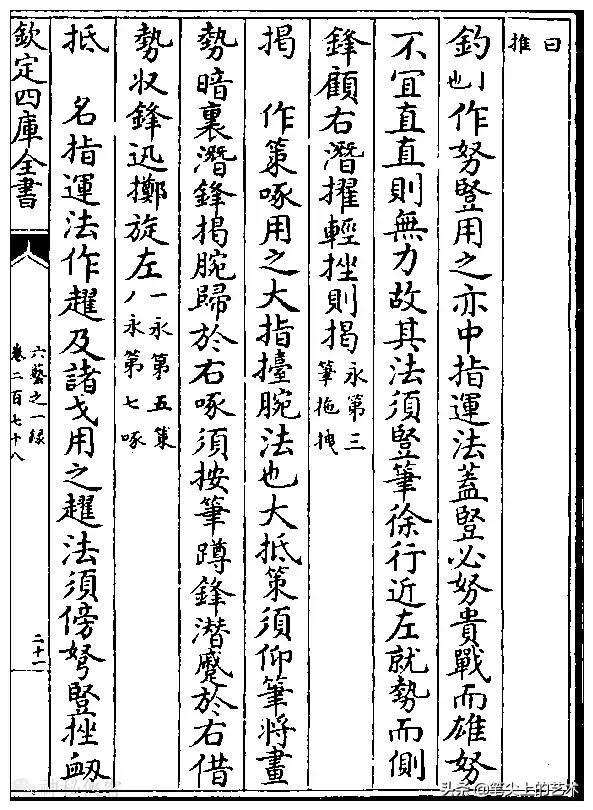 曰
推
釣丨也作努豎用之亦中指運法蓋豎必努貴戰而雄努
不宜直直則無力故其法須豎筆徐行近左就勢而側
鋒顧右潛擢輕挫則揭永第三
筆拖拽
揭 作策啄用之大指擡腕法也大抵策須仰筆將畫
勢暗裏潛鋒揭腕歸於右啄須按筆蹲鋒潛蹙於右借
勢収鋒迅擲旋左一永第五策
丿永第七啄
抵 名指運法作趯及諸戈用之趯法須傍弩豎挫衂
欽定四庫全書
六藝之一録
卷二百七十八
二十一
头条@笔尖上的艺术